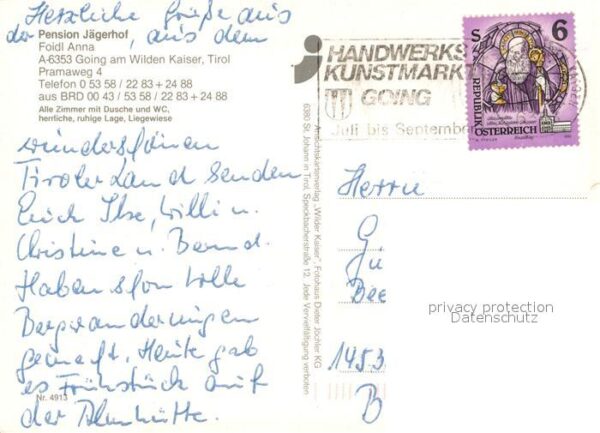 Herzliche Grüße aus
der Pension Jägerhof, aus dem
Foidl Anna
A-6353 Going am Wilden Kaiser, Tirol
Pramaweg 4
Telefon 0 53 58 / 22 83 + 24 88
aus BRD 00 43 / 53 58 / 22 83 + 24 88
Alle Zimmer mit Dusche und WC,
herrliche, ruhige Lage, Liegewiese
wunderschönen
Tiroler Land senden
Euch Ilse, Willi u.
Christine u. Bernd.
Haben schon tolle
Bergwanderungen
gemacht. Heute gab
es Frühstück auf
der Almhütte.
Nr. 4913
Ansichtskartenverlag „Wilder Kaiser", Fotohaus Dieter Jöchler KG
6380 St. Johann in Tirol, Speckbacherstraße 12, Jede Vervielfältigung verboten
HANDWERKS
KUNSTMARKT
GOING
Juli bis September
S 6
REPUBLIK
ÖSTERREICH
Herrn
G
Gü
Bee
1453
B
privacy protection
Datenschutz